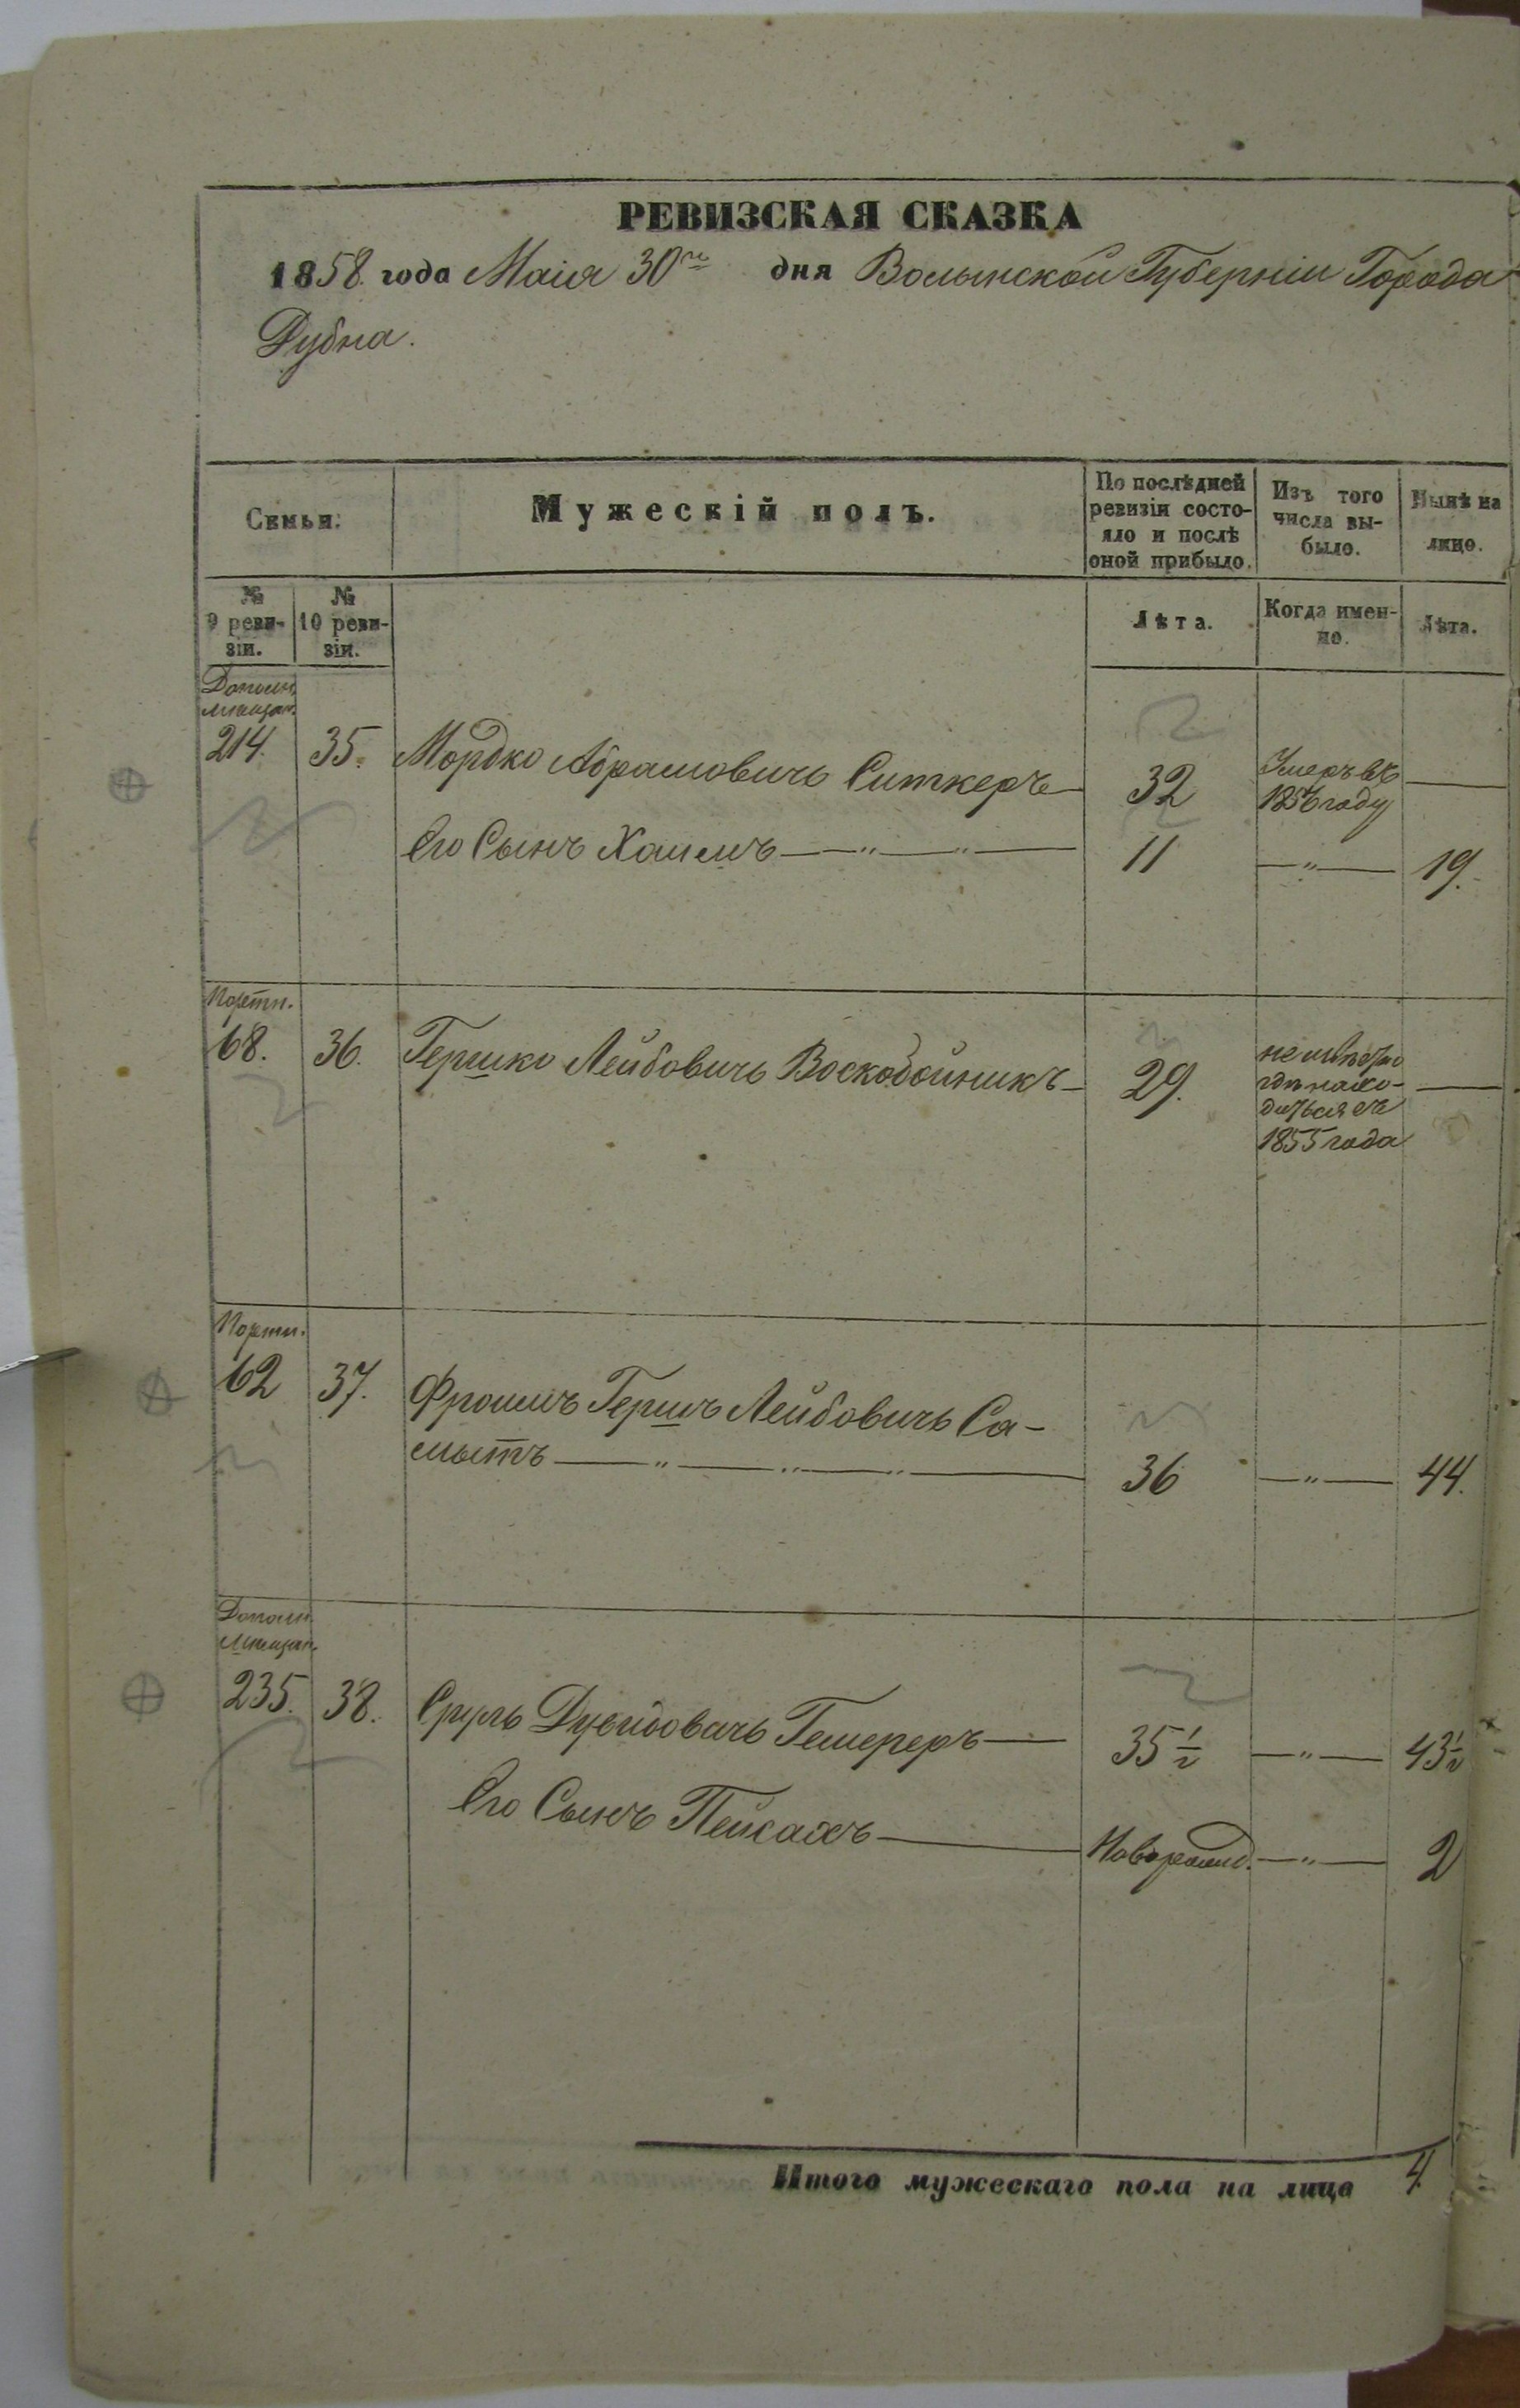 РЕВИЗСКАЯ СКАЗКА
1858. года Маія 30го дня Волынской Губерніи Города
Дубна.
Семьи. Мужескій полъ. По послѣдней ревизіи состояло и послѣ оной прибыло. Изъ того числа выбыло. Нынѣ на лицо.
№ 9 ревизіи. № 10 ревизіи. Лѣта. Когда именно. Лѣта.
Дополн.
мѣщан.
214. 35. Мордко Абрамовичъ Ситкеръ 32 Умеръ въ
1856 году
Его Сынъ Хаимъ 11 — " — 19.
Портн.
68. 36. Гершко Лейбовичъ Воскобойникъ 29.
где нахо-
диться съ
1855 года
Портн.
62 37. Фроимъ Гершъ Лейбовичъ Са-
мытъ 36 — " — 44.
Дополн.
мѣщан.
235. 38. Сруль Дувидовичъ Гемереръ 35½ — " — 43½
Его Сынъ Пейсахъ Новорожд. — " — 2
Итого мужескаго пола на лицо 4.